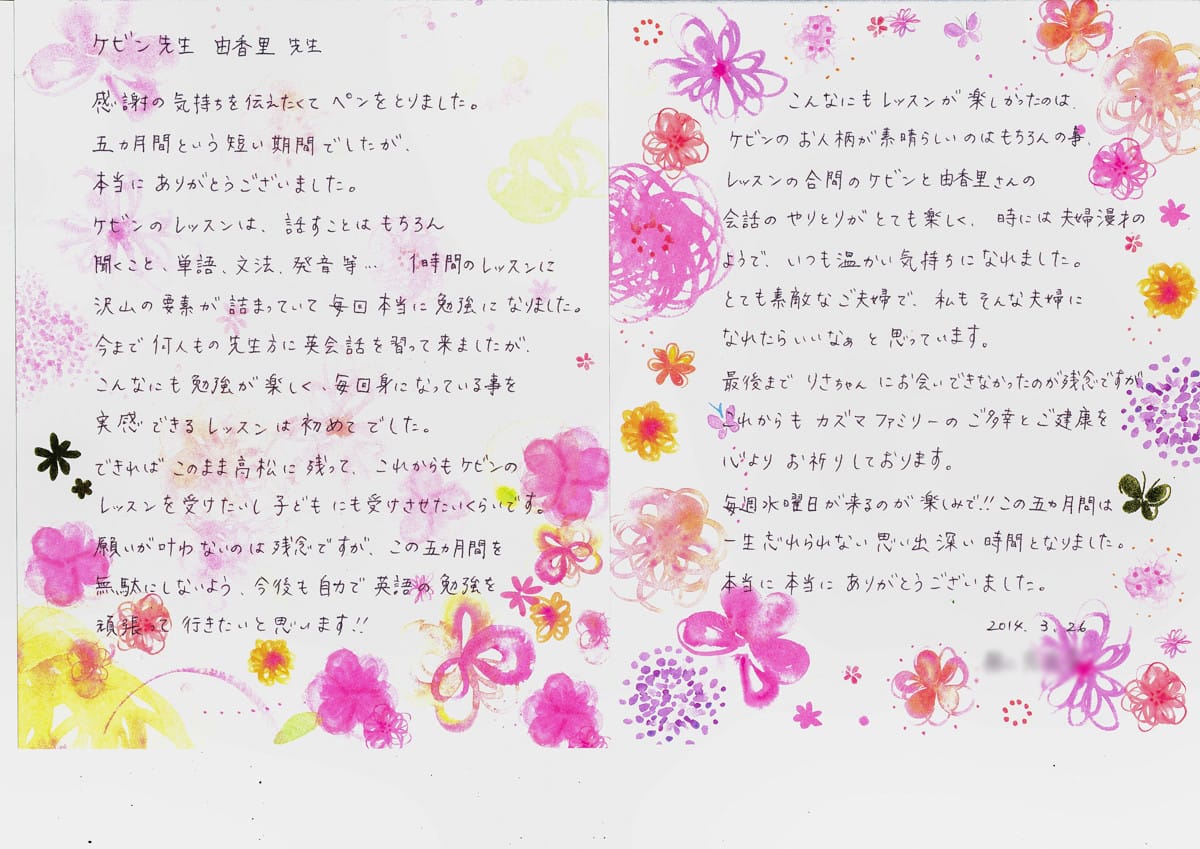 ケビン先生 由香里 先生
感謝の気持ちを伝えたくて ペンをとりました。
五カ月間という短い期間でしたが、
本当に ありがとうございました。
ケビンの レッスンは、話すことは もちろん
聞くこと、単語、文法、発音 等… 1時間のレッスンに
沢山の要素が 詰まっていて 毎回 本当に 勉強に なりました。
今まで 何人もの 先生方に 英会話を習って来ましたが、
こんなにも 勉強が 楽しく、毎回身になっている事を
実感できる レッスンは 初めて でした。
できれば このまま高松に 残って、これからも ケビンの
レッスンを受けたいし 子ども にも受けさせたいくらいです。
願いが叶わないのは 残念ですが、この五カ月間を
無駄にしないよう、今後も自力で 英語の 勉強を
頑張って 行きたいと 思います!!
こんなにも レッスンが 楽しかったのは、
ケビンの お人柄が 素晴らしい のは もちろんの事、
レッスンの合間の ケビンと 由香里さんの
会話の やりとりが とても楽しく、時には 夫婦漫才の
ようで、いつも 温かい 気持ちに なれました。
とても 素敵な ご夫婦で、私も そんな 夫婦に
なれたらいいなぁ と 思っています。
最後まで りさちゃん にお会いできなかったのが残念ですが
これからも カズマ ファミリーの ご多幸と ご健康を
心より お祈りしております。
毎週水曜日が来るのが 楽しみで!! この五カ月間は
一生忘れられない 思い出深い 時間と なりました。
本当に 本当に ありがとうございました。
2014. 3. 26